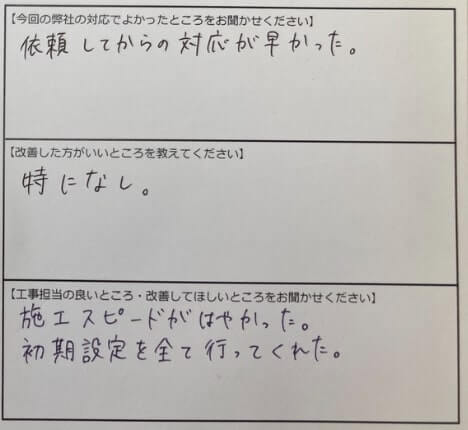 【今回の弊社の対応でよかったところをお聞かせください】
依頼してからの対応が早かった。
【改善した方がいいところを教えてください】
特になし。
【工事担当の良いところ・改善してほしいところをお聞かせください】
施工スピードがはやかった。
初期設定を全て行ってくれた。